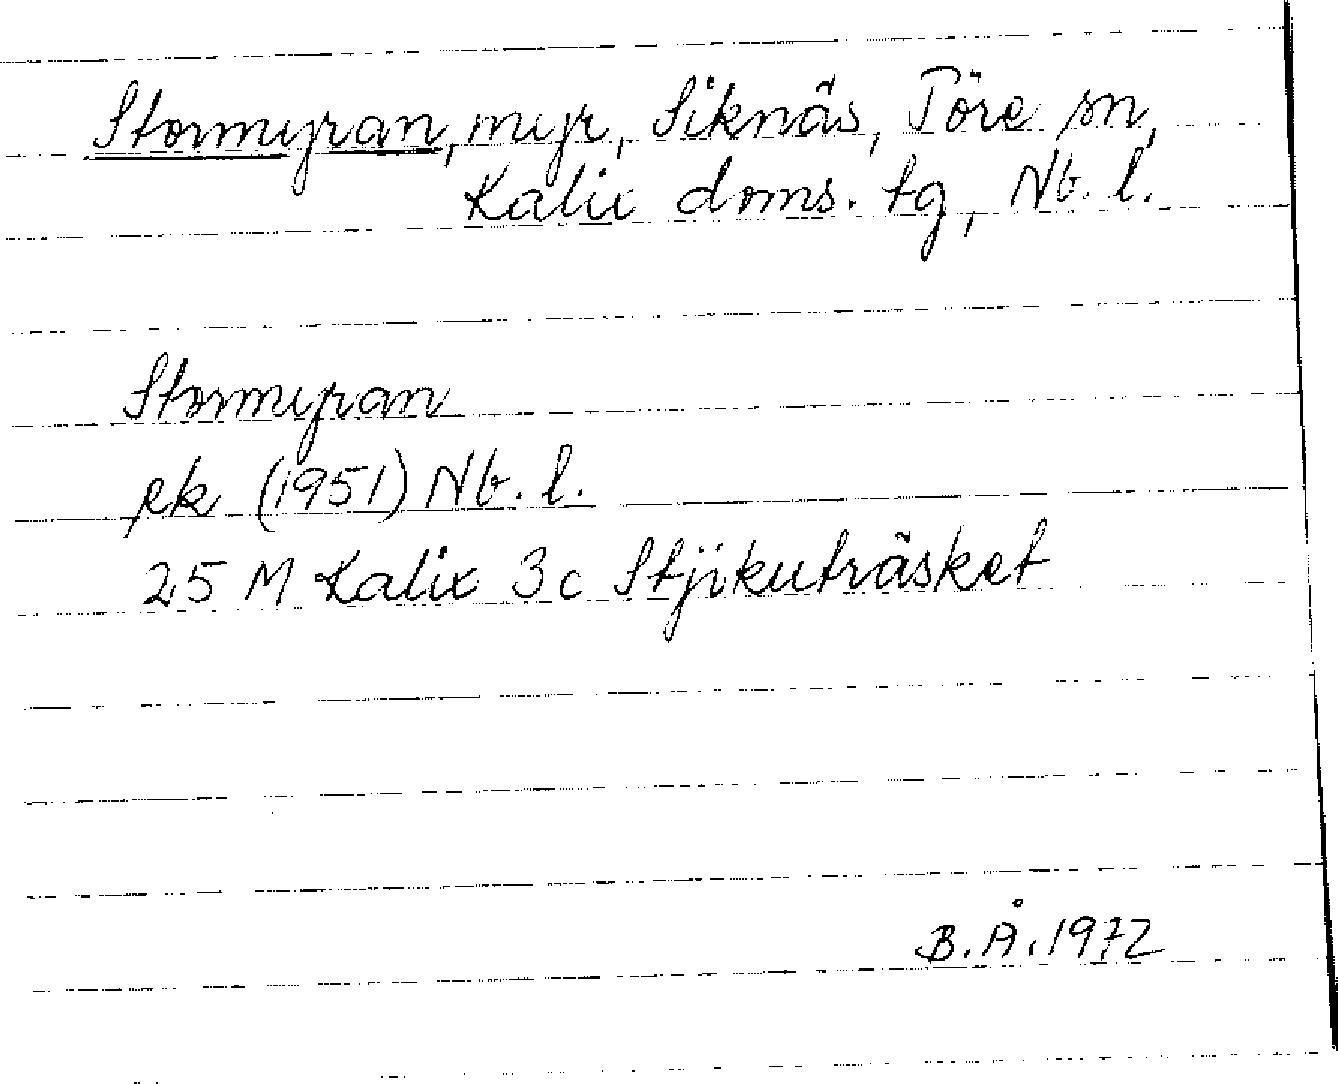 Stormyran, myr, Siknäs, Töre sn,
Kalix doms. tg, Nb. l.
Stormyran
ek (1951) Nb. l.
25 M Kalix 3c Stjikuträsket
B. Å. 1972